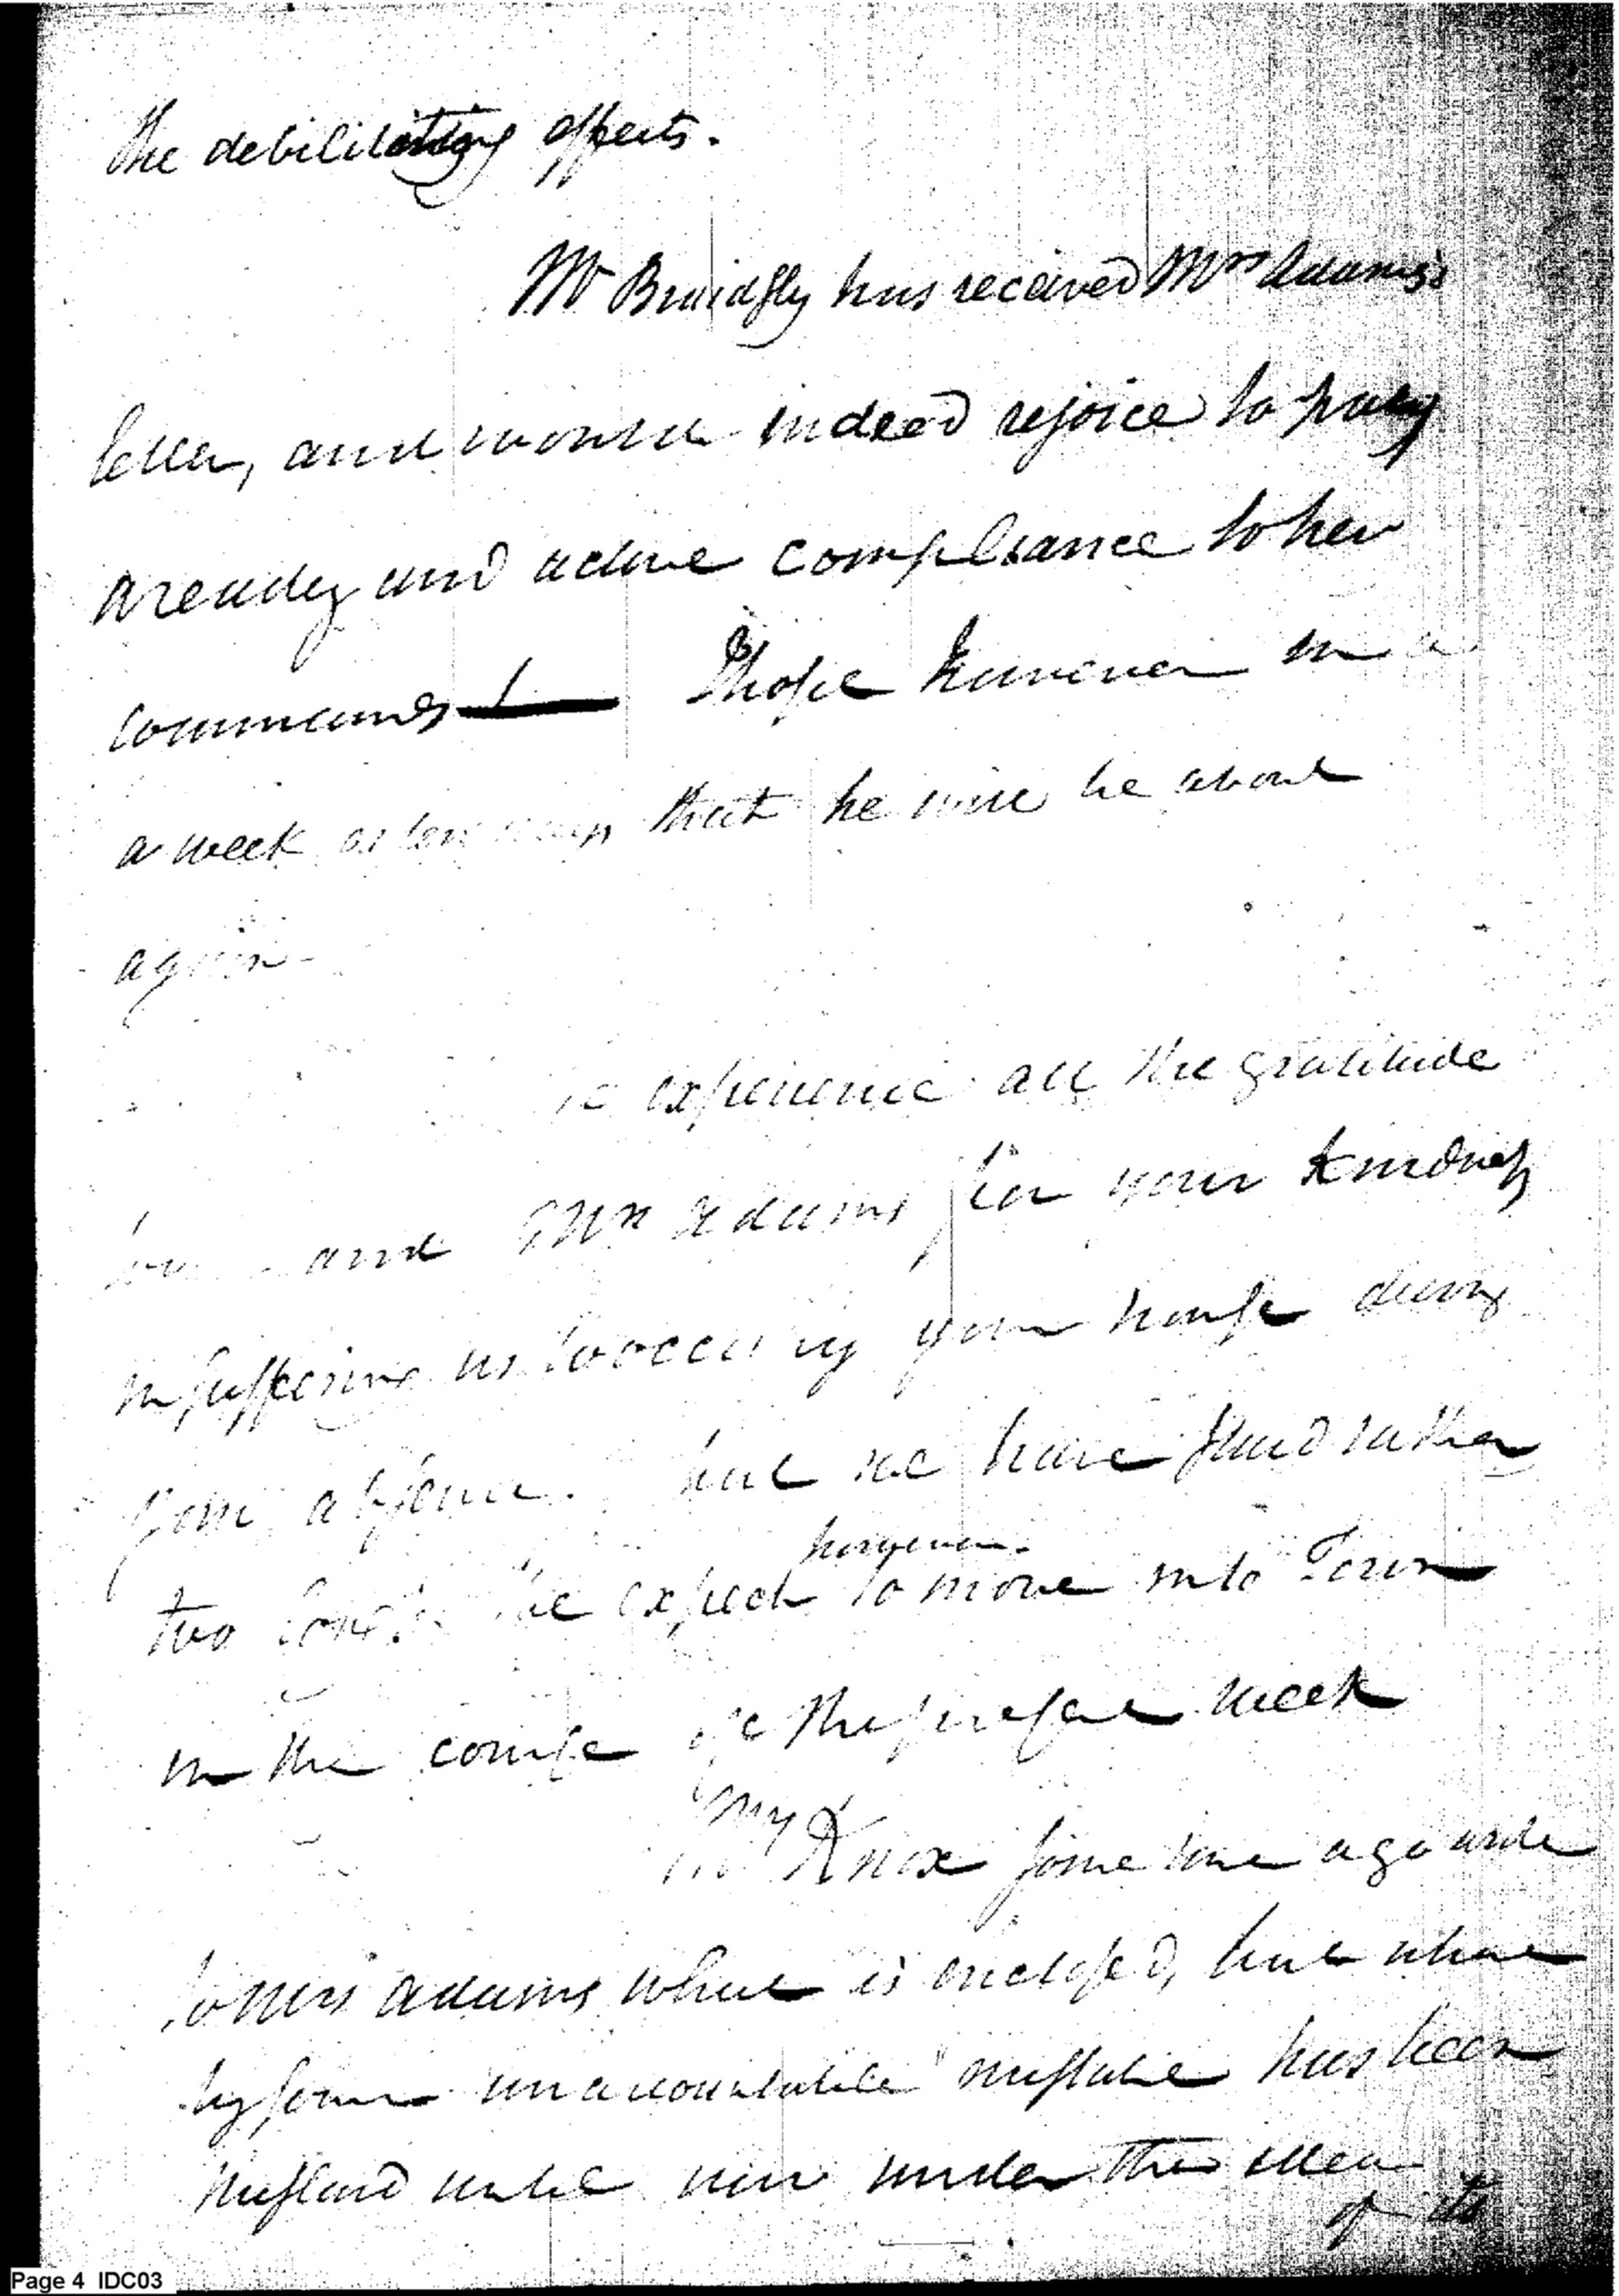 the debilitating effects.
Mr Briesly has received Mrs Adams's
letter, and would indeed rejoice to pay
a ready and active compliance to her
commands I hope however in a
a week or ten days that he will be about
again
we experience all the gratitude
to you and Mrs Adams for your kindness
in suffering us to occupy your house during
your absence. but we have staid rather
however
too long. we expect to move into Town
in the course of the present week
My
Mrs Knox some time ago wrote
to Mrs Adams what is enclosed, but which
by some unaccountable mistake has been
mislaid until now under the idea
of its
Page 4 IDC03